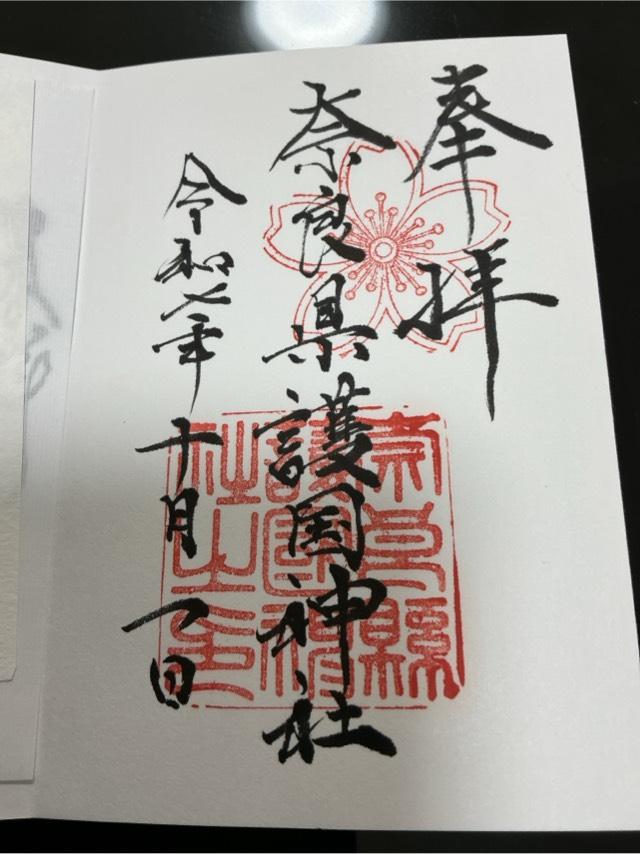 奉拝
奈良県護国神社
令和七年十月一日
奈良縣
護國神
社之印